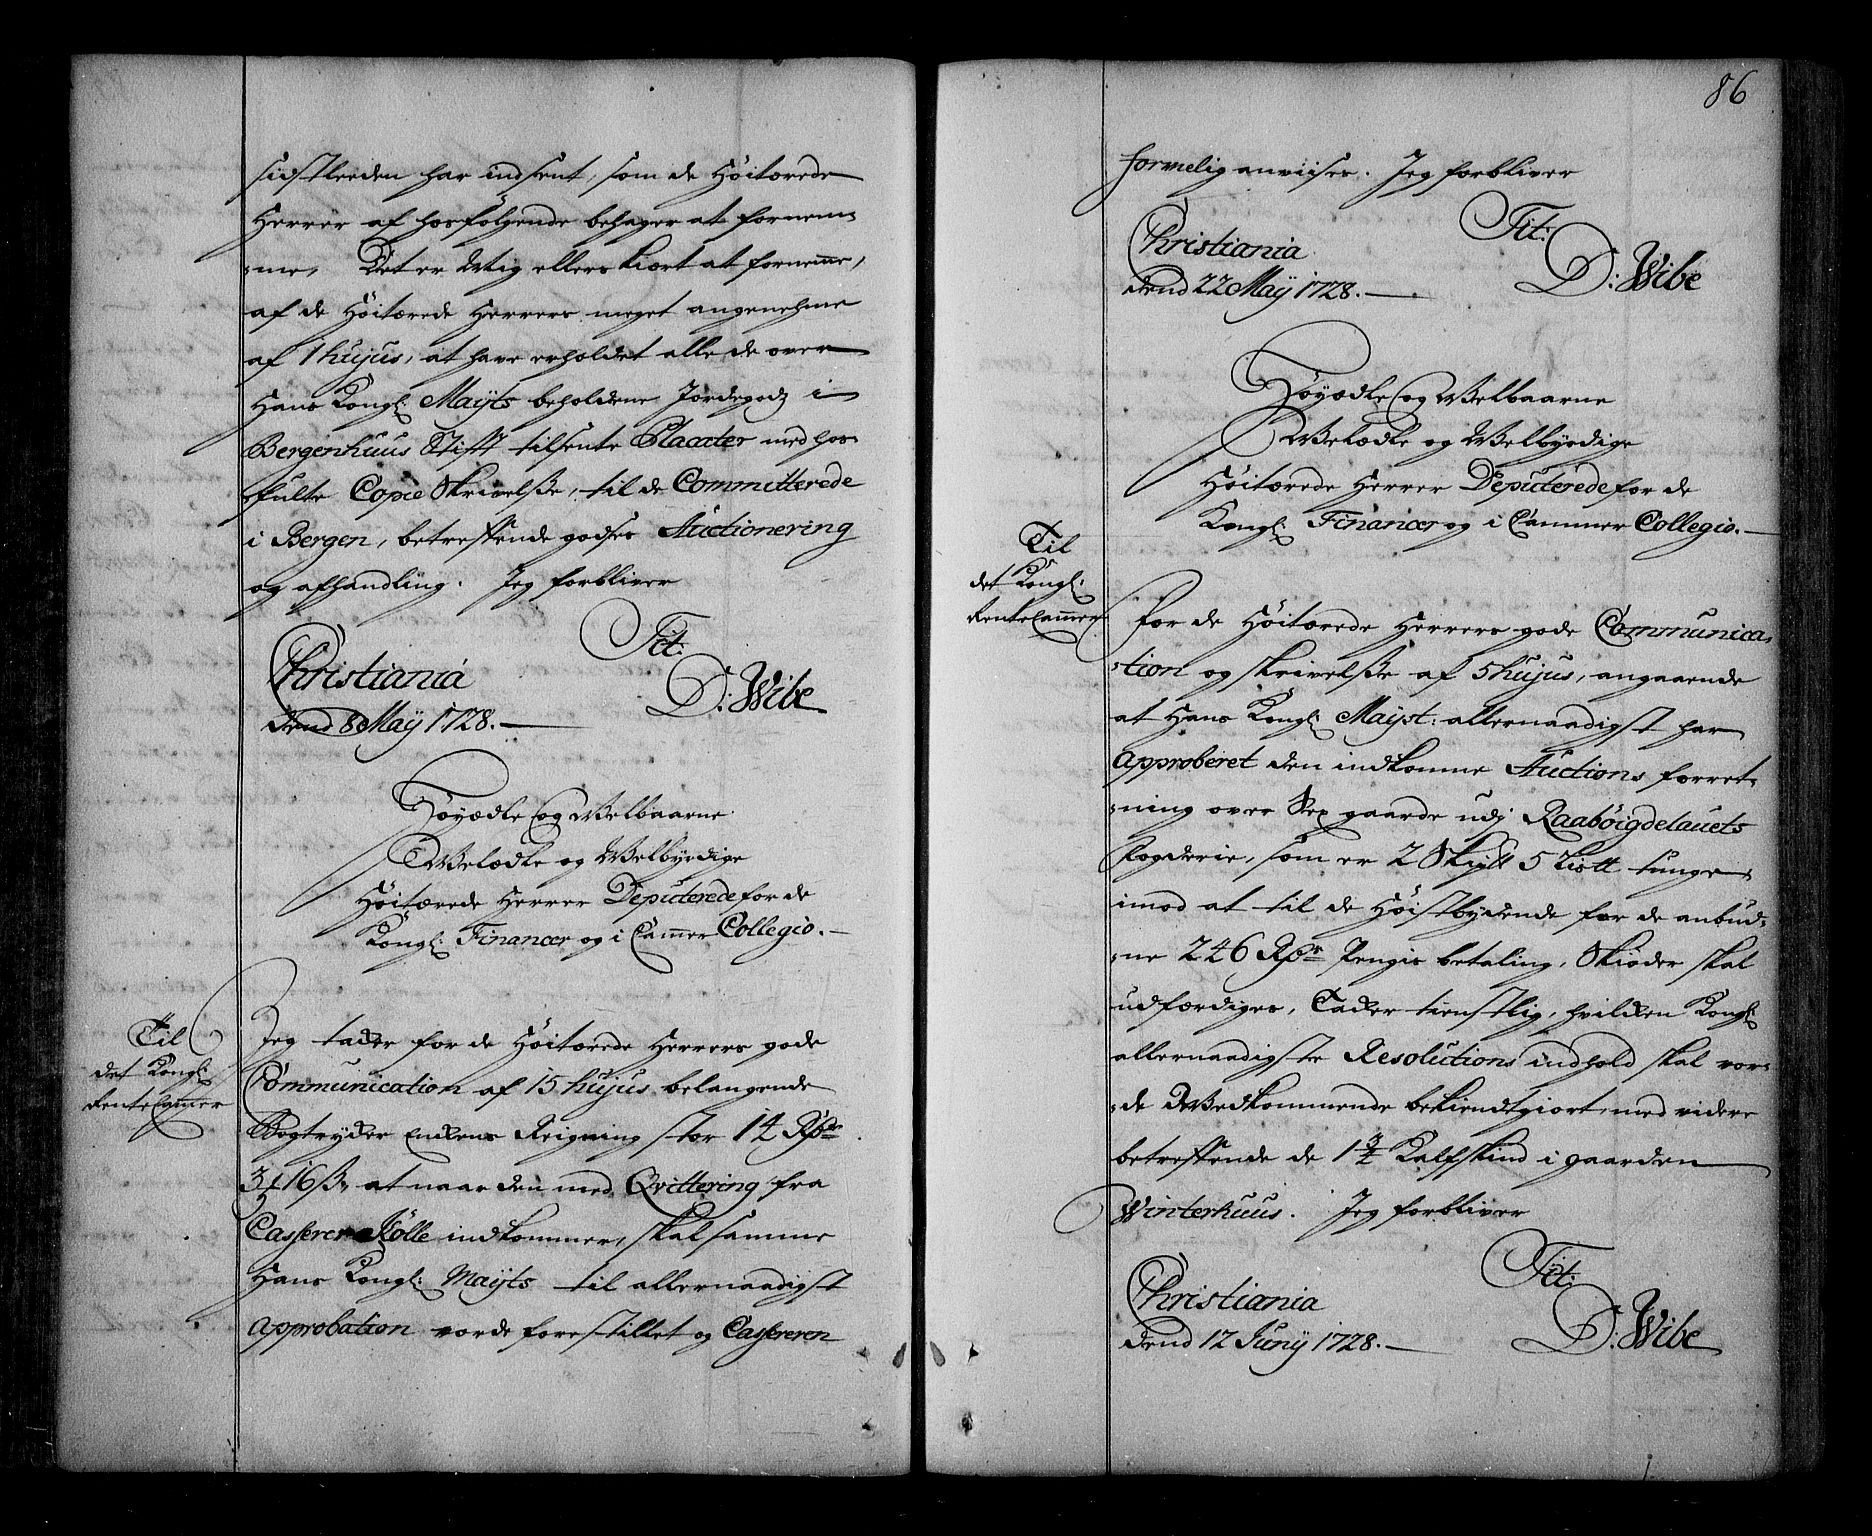 sidstleeden har indsent, som de Höitærede
Herrer af hosfölgende behager at fornem-
-me, Det er Mig ellers kiert at fornemme,
af de Höitærede Herrers meget angenehme
af 1 hujus, at have erholdet alle de over
Hans Kongl: Mayts beholdene Jordegods i
Bergenhuus Stift tilsente Placater med hos-
fulte Copie Skrivelße, til de Committerede
i Bergen, betreffende godses Auctionering
og afhandling. Jeg forbliver
Tit:
Christiania
dend 8 May 1728.
D: Wibe
Höyædle og Welbaarne
Welædle og Welbyrdige
Höitærede Herrer Deputerede for de
Kongl: Financer og i Cammer Collegio.
Til
det Kongl:
RenteCammer
Jeg tacker for de Höitærede Herrers gode
Communication af 15 hujus belangende
Bogtrycker Regning stor 14 Rdr
3 16 ß, at naar den med Qvittering fra
Casserer indkommer, skal samme
Hans Kongl: Mayts til allernaadigst
Approbation vorde forestillet og Cassereren
86
formelig anviises. Jeg forbliver
Tit:
Christiania
dend 22 May 1728.
D: Wibe
Höyædle og Welbaarne
Welædle og Welbyrdige
Höitærede Herrer Deputerede for de
Kongl: Financer og i Cammer Collegio.
Til
det Kongl:
RenteCammer
For de Höitærede Herrers gode Communica-
-tion og skrivelße af 5 hujus, angaaende
at Hans Kongl: Mayst: allernaadigst har
Approberet den indkomne Auctions forret-
-ning over Sex gaarde udj Raaböigdelauets
Fogderie, som er 2 Skyll 5 tunge
imod at til de Höistbydende for de anbud-
-ne 246 Rdr Penges betaling, Skiöder skal
udfærdiges, Tacker tienstlig, hvilcken Kongl:
allernaadigste Resolutions indhold skal vor-
-de Wedkommende bekiendtgiort, med videre
betreffende de 1 3/4 Kalfskind i gaarden
Winterhuus. Jeg forbliver
Tit:
Christiania
dend 12 Junij 1728.
D: Wibe